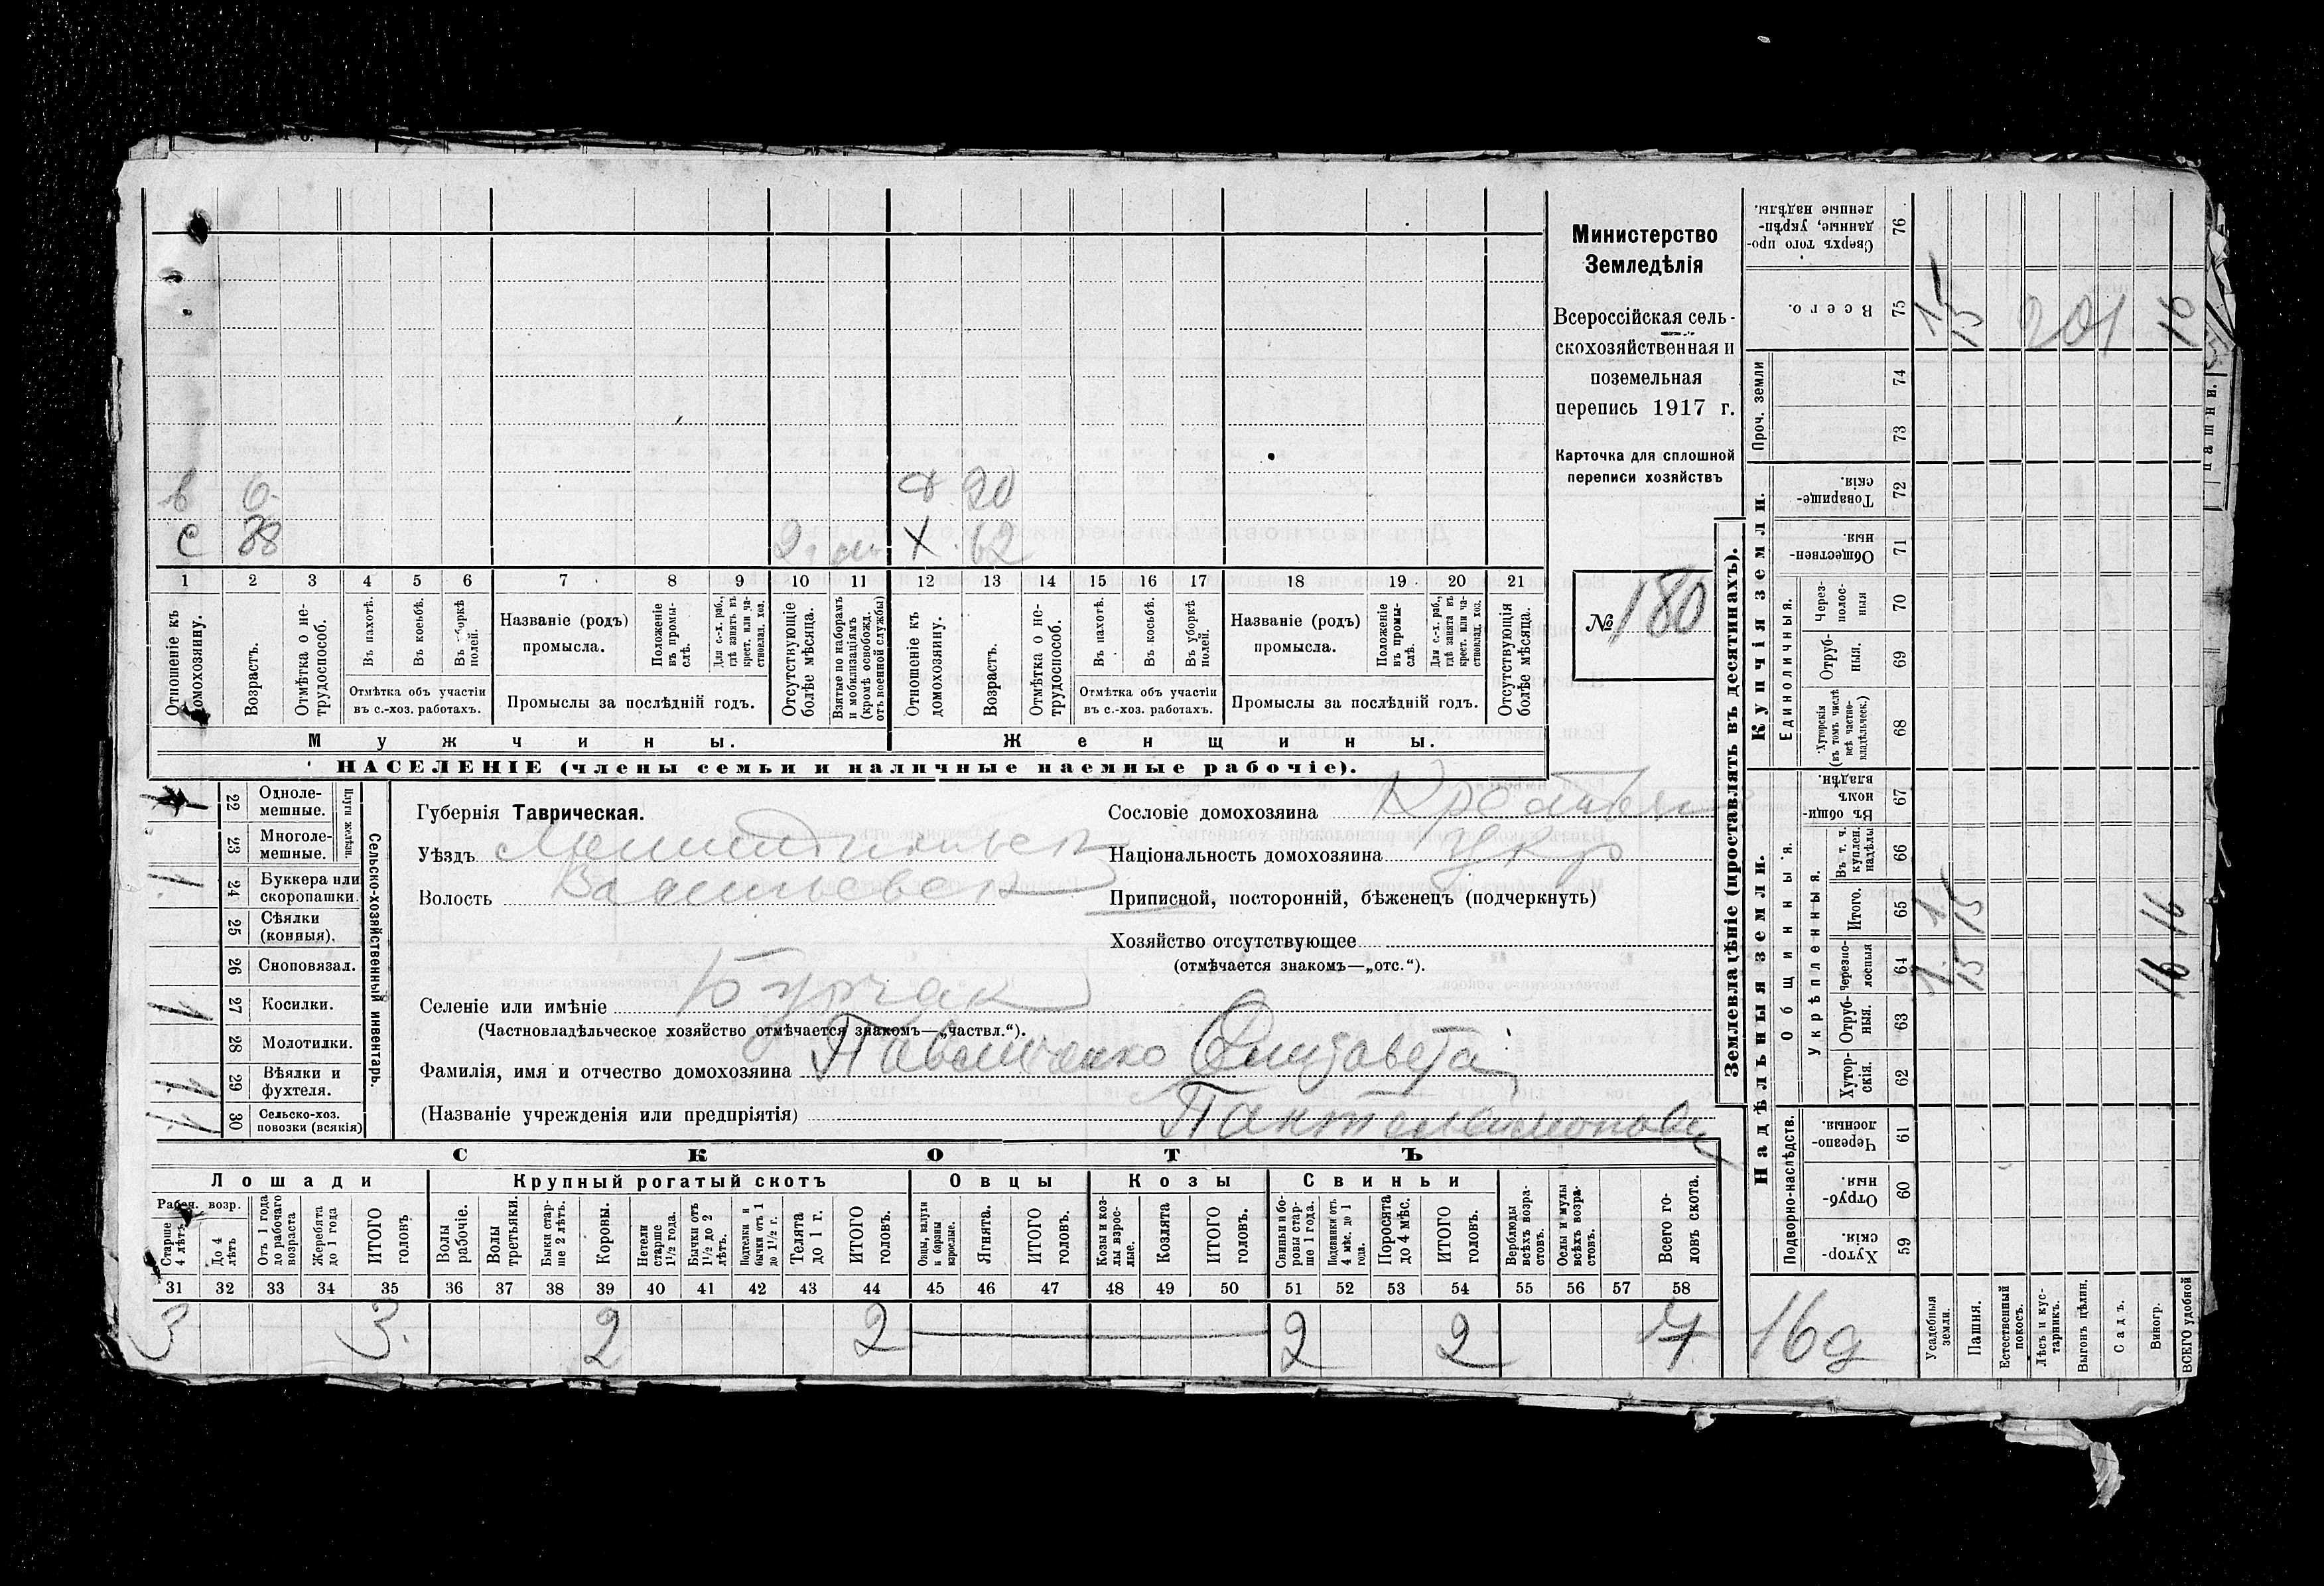 в 6 д 20
с 38 х 62
1 2 3 4 5 6 7 8 9 10 11 12 13 14 15 16 17 18 19 20 21
Отношеніе къ домохозяину.
Возрастъ.
Отмѣтка о нетрудоспособ.
Въ пахотѣ.
Въ косьбѣ.
Въ уборкѣ полей.
Отмѣтка объ участіи
въ с.-хоз. работахъ.
Названіе (родъ)
промысла.
Положеніе въ промыслѣ.
Для с.-х. раб., гдѣ занятъ въ крест. или частновлад. хоз.
Промыслы за послѣдній годъ.
Отсутствующіе болѣе мѣсяца.
Взятые по наборамъ и мобилизаціямъ (кромѣ освобожд. отъ военной службы)
Отношеніе къ домохозяину.
Возрастъ.
Отмѣтка о нетрудоспособ.
Въ пахотѣ.
Въ косьбѣ.
Въ уборкѣ полей.
Отмѣтка объ участіи
въ с.-хоз. работахъ.
Названіе (родъ)
промысла.
Положеніе въ промыслѣ.
Для с.-х. раб., гдѣ занята въ крест. или частновлад. хоз.
Промыслы за послѣдній годъ.
Отсутствующія болѣе мѣсяца.
Мужчины. Женщины.
НАСЕЛЕНІЕ (члены семьи и наличные наемные рабочіе).
Министерство
Земледѣлія
Всероссійская сель-
скохозяйственная и
поземельная
перепись 1917 г.
Карточка для сплошной
переписи хозяйствъ
№ 180
Сельско-хозяйственный инвентарь.
Плуги желѣзн.
22 Однолемешные.
23 Многолемешные.
1 24 Буккера или скоропашки.
25 Сѣялки (конныя).
26 Сноповязал.
1 27 Косилки.
28 Молотилки.
1 29 Вѣялки и фухтеля.
1 30 Сельско-хоз. повозки (всякія)
Губернія Таврическая.
Уѣздъ Мелитопольск
Волость Васильевск
Селеніе или имѣніе Бурчак
(Частновладѣльческое хозяйство отмѣчается знакомъ—„частвл.“).
Фамилія, имя и отчество домохозяина Павличенко Елизавета
(Названіе учрежденія или предпріятія) Пантелеимонов
Сословіе домохозяина Крестьян
Національность домохозяина укр
Приписной, посторонній, бѣженецъ (подчеркнуть)
Хозяйство отсутствующее
(отмѣчается знакомъ—„отс.“).
СКОТЪ
Лошади Крупный рогатый скотъ Овцы Козы Свиньи
Рабоч. возр.
Старше 4 лѣтъ
До 4 лѣтъ
Отъ 1 года до рабочаго возраста
Жеребята до 1 года
ИТОГО головъ
Волы рабочіе.
Волы третьяки.
Быки старше 2 лѣтъ.
Коровы.
Нетели старше 1½ года.
Бычки отъ 1½ до 2 лѣтъ.
Подтелки и бычки отъ 1 до 1½ г.
Телята до 1 г.
ИТОГО головъ.
Овцы, валухи и бараны взрослые.
Ягнята.
ИТОГО головъ.
Козы и козлы взрослые.
Козлята
ИТОГО головъ.
Свиньи и боровы старше 1 года.
Подсвинки отъ 4 мѣс. до 1 года.
Поросята до 4 мѣс.
ИТОГО головъ.
Верблюды всѣхъ возрастовъ.
Ослы и мулы всѣхъ возрастовъ.
Всего головъ скота.
31 32 33 34 35 36 37 38 39 40 41 42 43 44 45 46 47 48 49 50 51 52 53 54 55 56 57 58
3 3. 2 2 2 2 7
Землевладѣніе (проставлять въ десятинахъ).
Надѣльныя земли. Купчія земли.
Подворно-наслѣдств.
Общинныя.
Укрѣпленныя.
Единоличныя.
Проч. земли
Хуторскія. 59
Отрубныя. 60
Черезполосныя. 61
Хуторскія. 62
Отрубныя. 63
Черезполосныя 64 1 15 16
Итого. 65 1 15 16
Въ т. ч. куплен. надѣлы 66
Въ общинномъ владѣн. 67
Хуторскія (въ томъ числѣ всѣ частновладѣльческ.) 68
Отрубныя. 69
Черезполосныя 70
Общественныя. 71
Товарищескія. 72
73
74
Всего. 75 1 15 201 16
Сверхъ того проданные, укрѣпленные надѣлы. 76
16 д
Усадебныя земли.
Пашня.
Естественный покосъ.
Лѣсъ и кустарникъ.
Выгонъ цѣлин.
Садъ.
Виногр.
ВСЕГО удобной
Пашни.